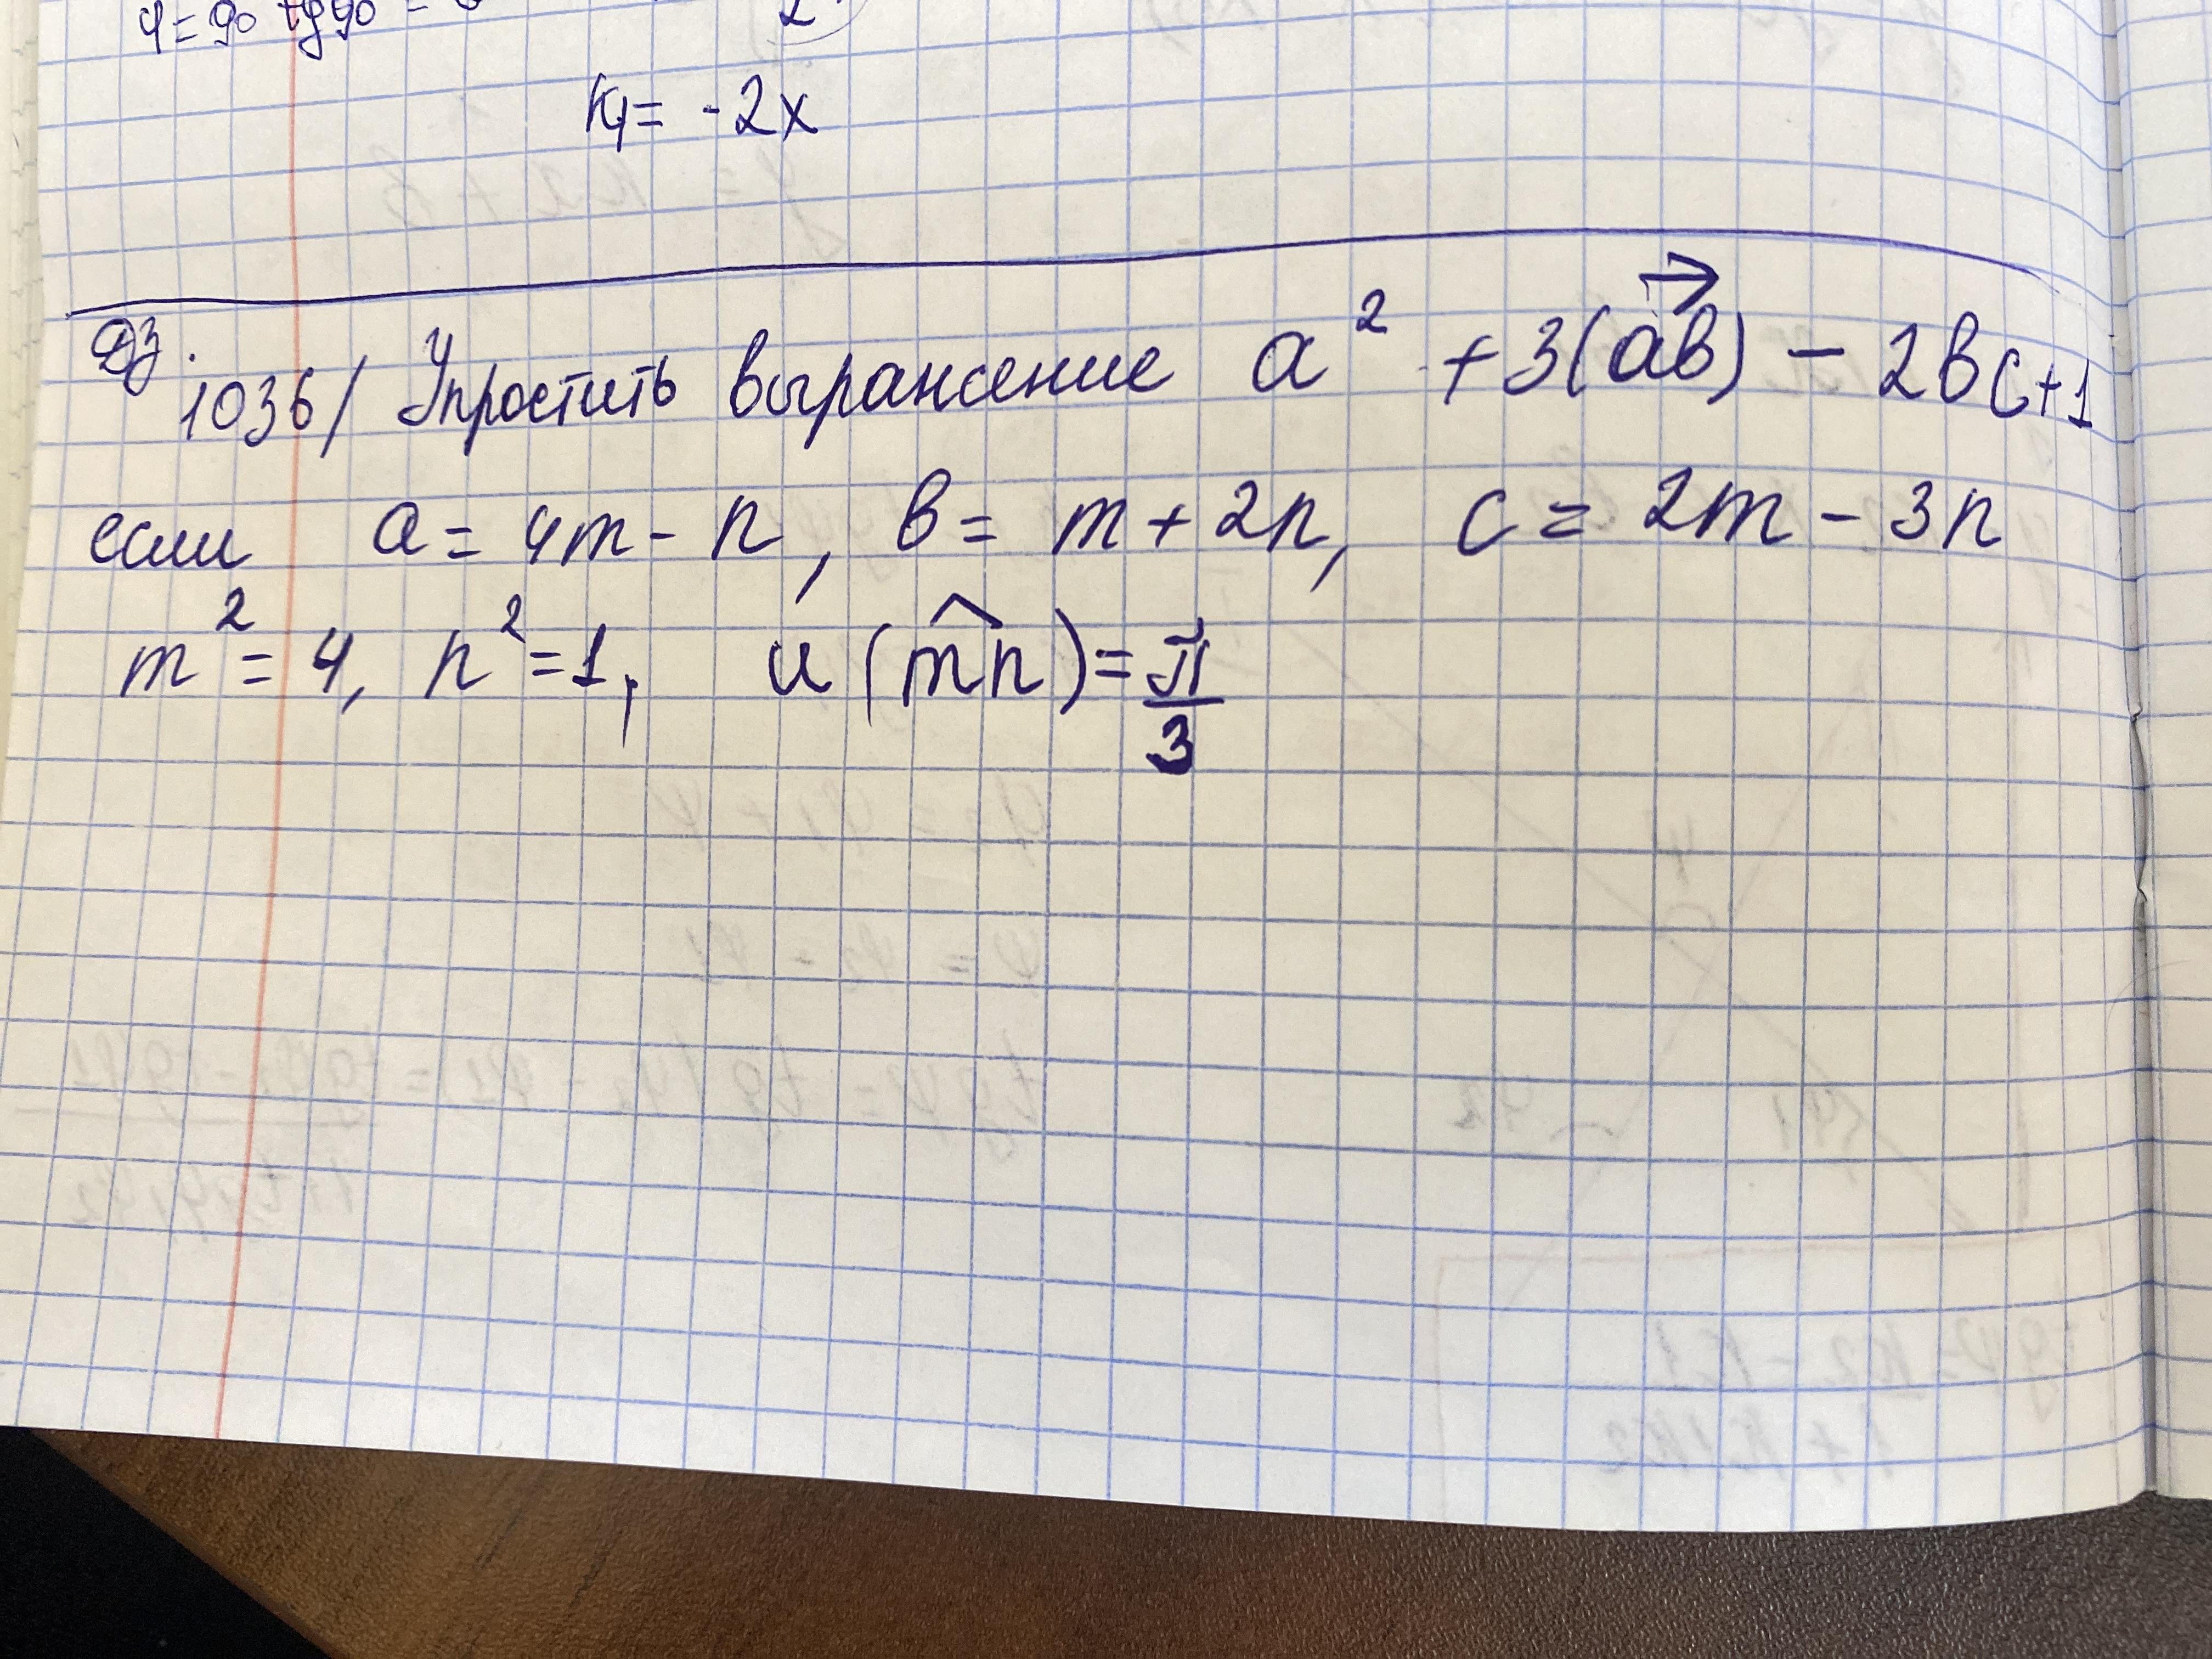 φ = 90 tg 90 =
K1 = -2x
ДЗ.
1036/ Упростить выражение a² + 3(ab) - 2bc+1
если a = 4m - n, b = m + 2n, c = 2m - 3n
m² = 4, n² = 1, и (mn) = π/3